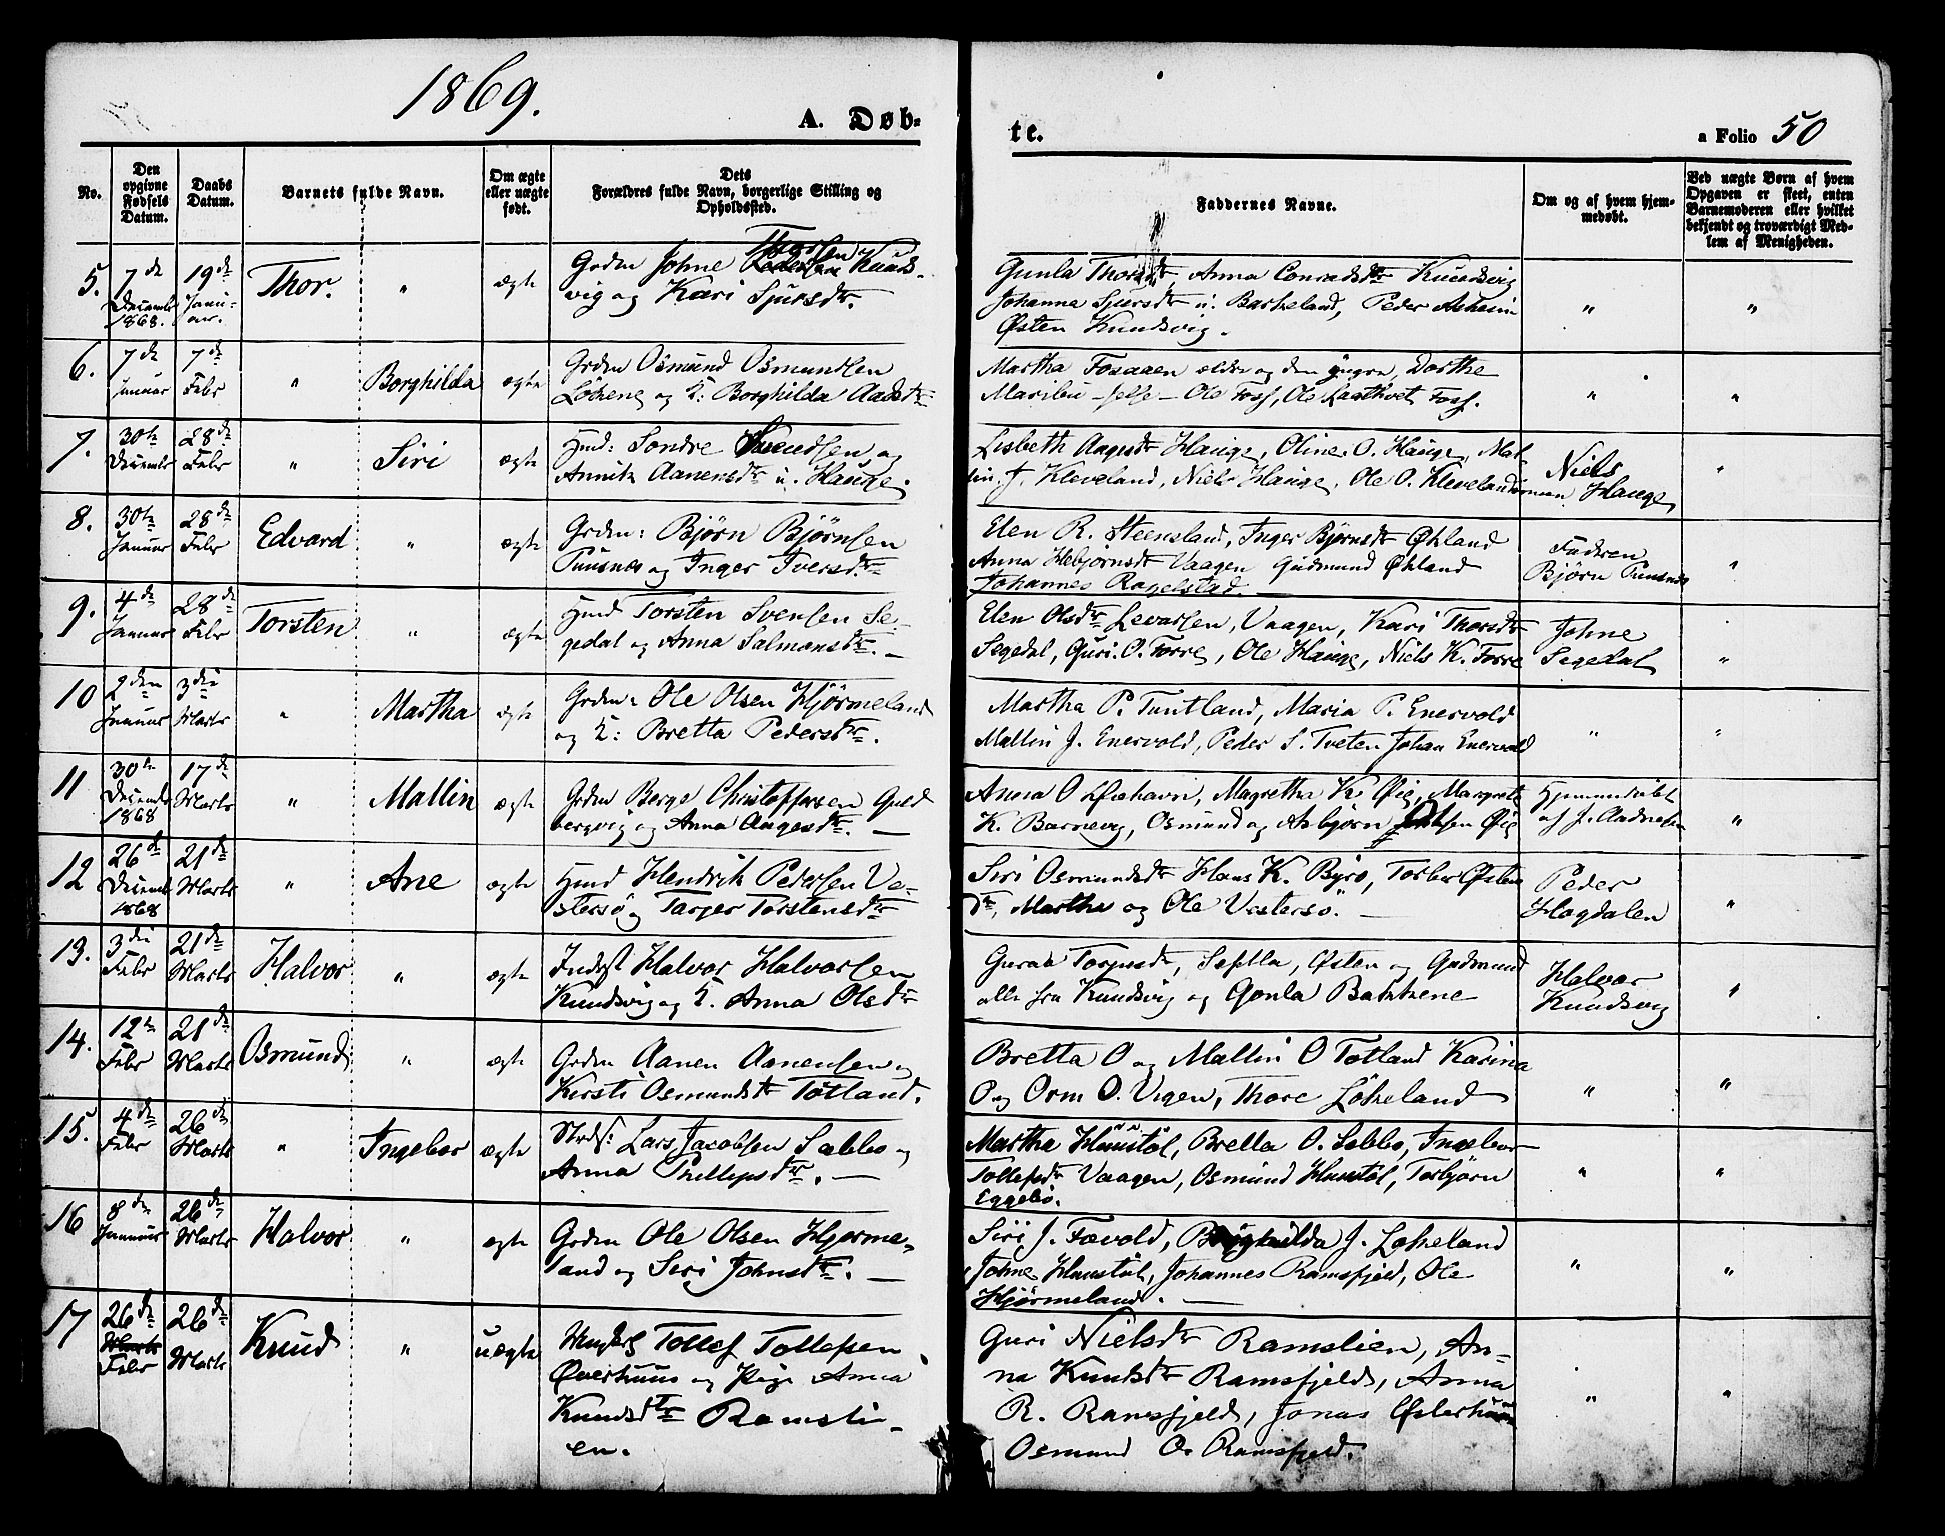 1869.
A. Døb-
te.
a Folio 50
No.
Den opgivne Fødsels Datum.
Daabs Datum.
Barnets fulde Navn.
Om ægte eller uægte født.
Dets Forældres fulde Navn, borgerlige Stilling og Opholdssted.
Faddernes Navne.
Om og af hvem hjemmedøbt.
Ved uægte Børn af hvem Opgaven er skeet, enten Barnemoderen eller hvilket bekjendt og troværdigt Medlem af Menigheden.
5. 7de Decembr 1868. 19de Januar. Thor. " ægte
Grdm Johne Thorsen Knuds-
vig og Kari Sjursdtr.
Gunla Thorsdtr, Anna Conradsdtr Knudsvig
Johanna Sjursdtr u. Barkeland, Peder Asheim
Østen Knudsvig. " "
6. 7de Januar 7de Febr " Borghilda ægte
Grdm Osmund Osmundsen
Løkene og K: Borghilda Aadsdtr
Martha Fosaaen ældre og den yngre, Dorthe
Marilbu - selse - Ole Foss, Ole Laathvet Foss. " "
7. 30te Decembr 28de Febr " Siri ægte
Hmd: Sondre Svendsen og
Annik Aanensdtr u. Hauge.
Lisbeth Aagesdtr Hauge, Oline O. Hauge, Mal-
lin J. Kleveland, Niels Hauge, Ole O. Kleveland
Niels
Hauge "
8. 30te Januar 28de Febr Edvard " ægte
Grdm: Bjørn Bjørnsen
Puusnes og Inger Iversdtr
Elen R. Steensland, Inger Bjørnsdtr Øhland
Anna Hebjørnsdtr Vaagen Gudmund Øhland
Johannes Ragelstad
Faderen
Bjørn Puusnes "
9. 4de Januar 28de Febr Torsten " ægte
Hmd Torsten Svensen Se-
gedal og Anna Salmonsdtr. —
Elen Olsdtr Levarsen, Vaagen, Kari Thorsdtr
Segedal, Guri. O. Torre, Ole Hauge, Niels K. Torre
Johne
Segedal "
10 2den Januar 3die Marts " Martha ægte
Grdm: Ole Olsen Hjørmeland
og K: Bretta Pedersdtr.
Martha P. Tuntland, Maria P. Enervold
Mallin J. Enervold, Peder S. Tveten Johan Enervold " "
11 30te Decembr 1868 17de Marts " Mallin ægte
Grdm Berge Christoffersen Guld
bergvig og Anna Aagesdtr. —
Anna O Østhavn, Magretha K. Øig, Margrete
K. Barnevg, Osmund og Asbjørn Øig
Hjemmedøbt
af J. Aadnesen "
12 26de Decemb 1868 21de Marts " Ane ægte
Hmd Hendrik Pedersen Ve-
stersø og Tarjer Torstensdtr
Siri Osmundsdtr Hans K. Byrø, Torber Østens
dtr, Martha og Ole Vestersø. —
Peder
Hogdalen "
13. 3die Febr 21de Marts Halvor " ægte
Inderst Halvor Halvorsen
Knudsvig og K. Anna Olsdtr
Guraa Torjusdtr, Sefilla, Østen og Gudmund
alle fra Knudsvig og Gonla Bakkene
Halvor
Knudsvig "
14. 12te Febr 21de Marts Osmund " ægte
Grdm Aanen Aanensen og
Kirsti Osmundsdtr Totland.
Bretta O og Mallin O Totland Karina
O og Orm O. Vigen, Thore Løkeland " "
15. 4de Febr 26de Marts " Ingebor ægte
Strds: Lars Jacobsen Sæbbo og
Anna Phillipsdtr. —
Martha Hamstøl, Bretta O. Sebbo, Ingebor
Tollefsdtr Vaagen, Osmund Hamstøl, Torbjørn
Eggebø. " "
16 8de Januar 26de Marts Halvor " ægte
Grdm Ole Olsen Hjørme-
land og Siri Johnsdtr. —
Siri J. Fævold, Borghilda J. Løkeland
Johne Hamstøl, Johannes Ramsfjeld, Ole
Hjørmeland. — " "
17 26de Febr 26de Marts Knud " uægte
Ungkarl Tollef Tollefsen
Øverhuus og Pige Anna
Knudsdtr Ramsli-
en.
Guri Nielsdtr Ramslien, An-
na Knudsdtr Ramsfjeld, Anna
R. Ramsfjeld, Jonas Østerhuus
Osmund O. Ramsfjeld. " "